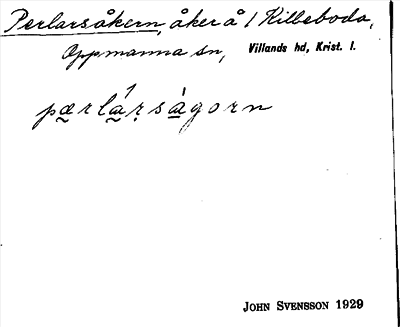 Perlarsåkern, åker å 1 Killeboda,
Oppmanna sn, Villands hd, Krist. l.
pæ̰rlá̰ṛsàgorn
JOHN SVENSSON 1929